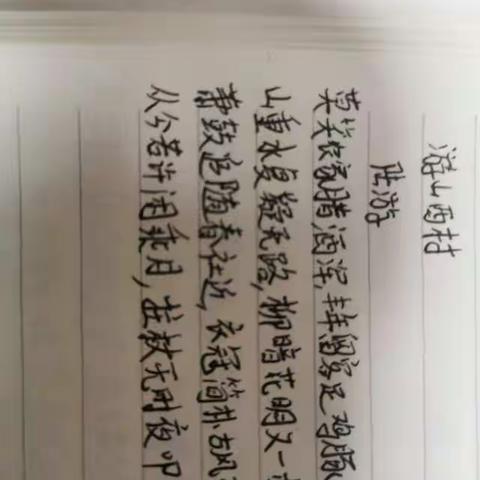 游山西村
陆游
莫笑农家腊酒浑,丰年留客足鸡豚
山重水复疑无路,柳暗花明又一
萧鼓追随春社近,衣冠简朴古风
从今若许闲乘月,拄杖无时夜叩